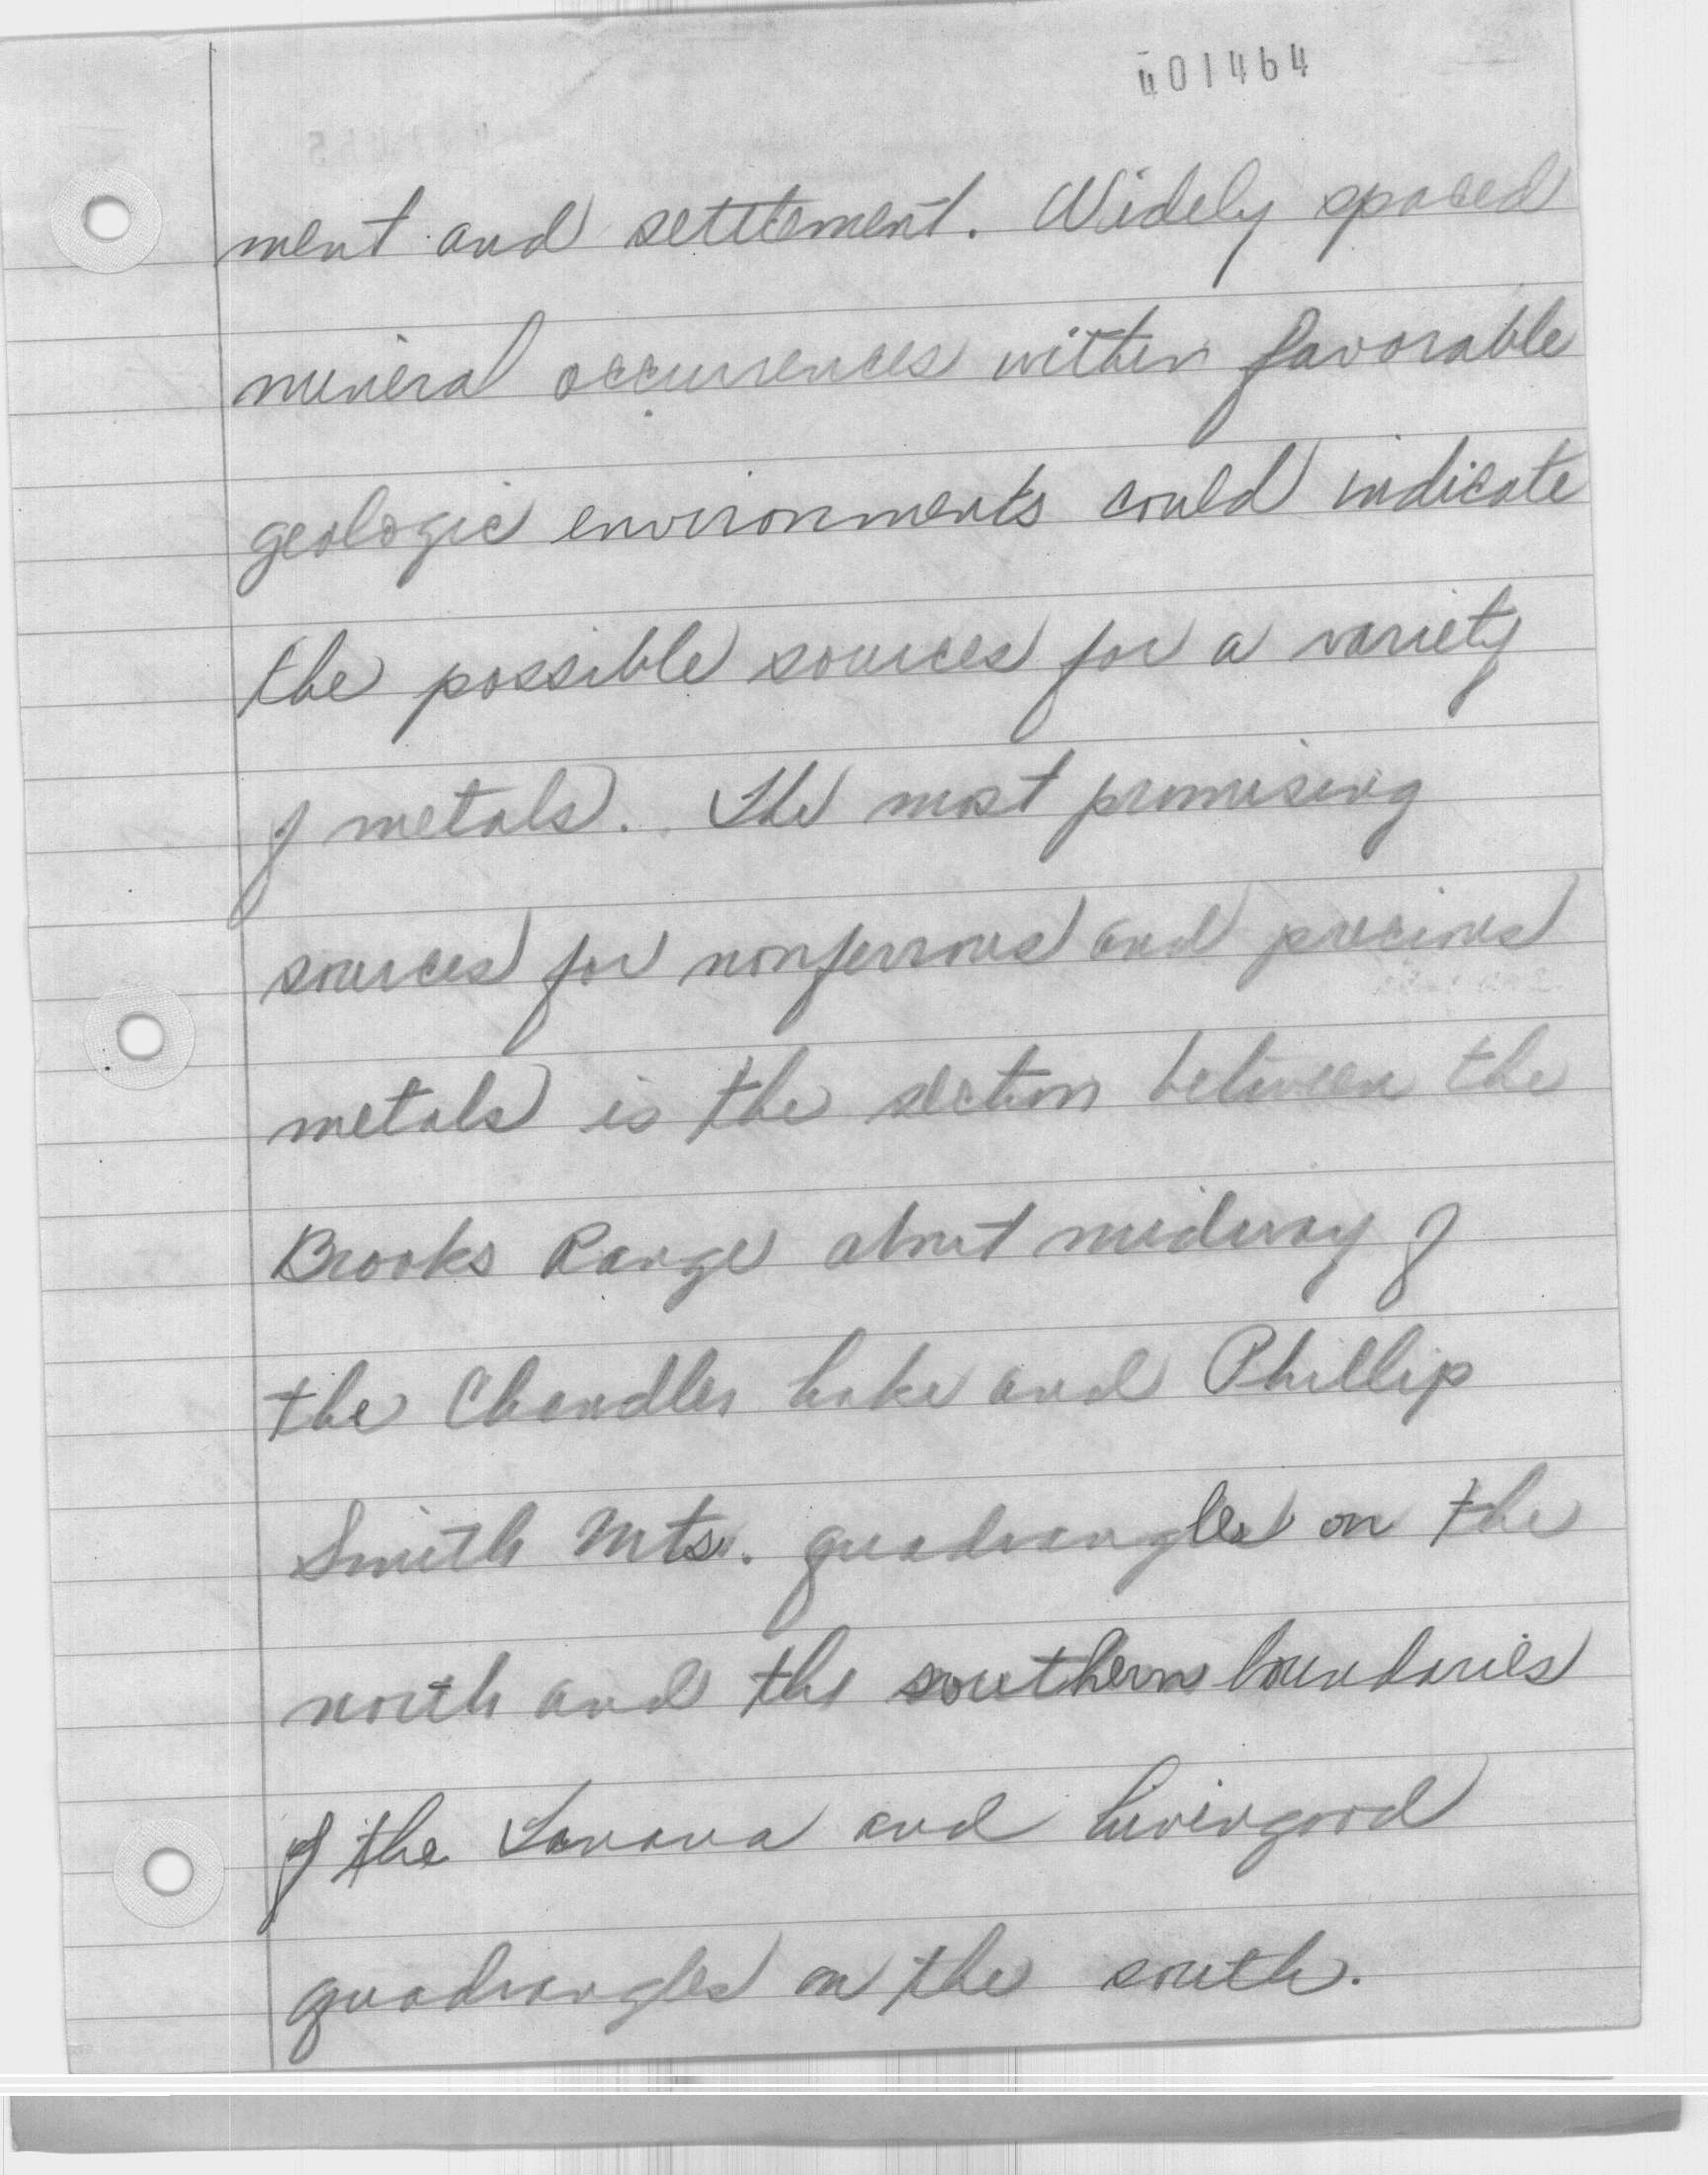 401464
ment and settlement. Widely spaced
mineral occurrences within favorable
geologic environments could indicate
the possible sources for a variety
of metals. The most promising
sources for nonferrous and precious
metals is the section between the
Brooks Range about midway of
the Chandler Lake and Phillip
Smith Mts. quadrangles on the
north and the southern boundaries
of the Tanana and Livengood
quadrangles on the south.